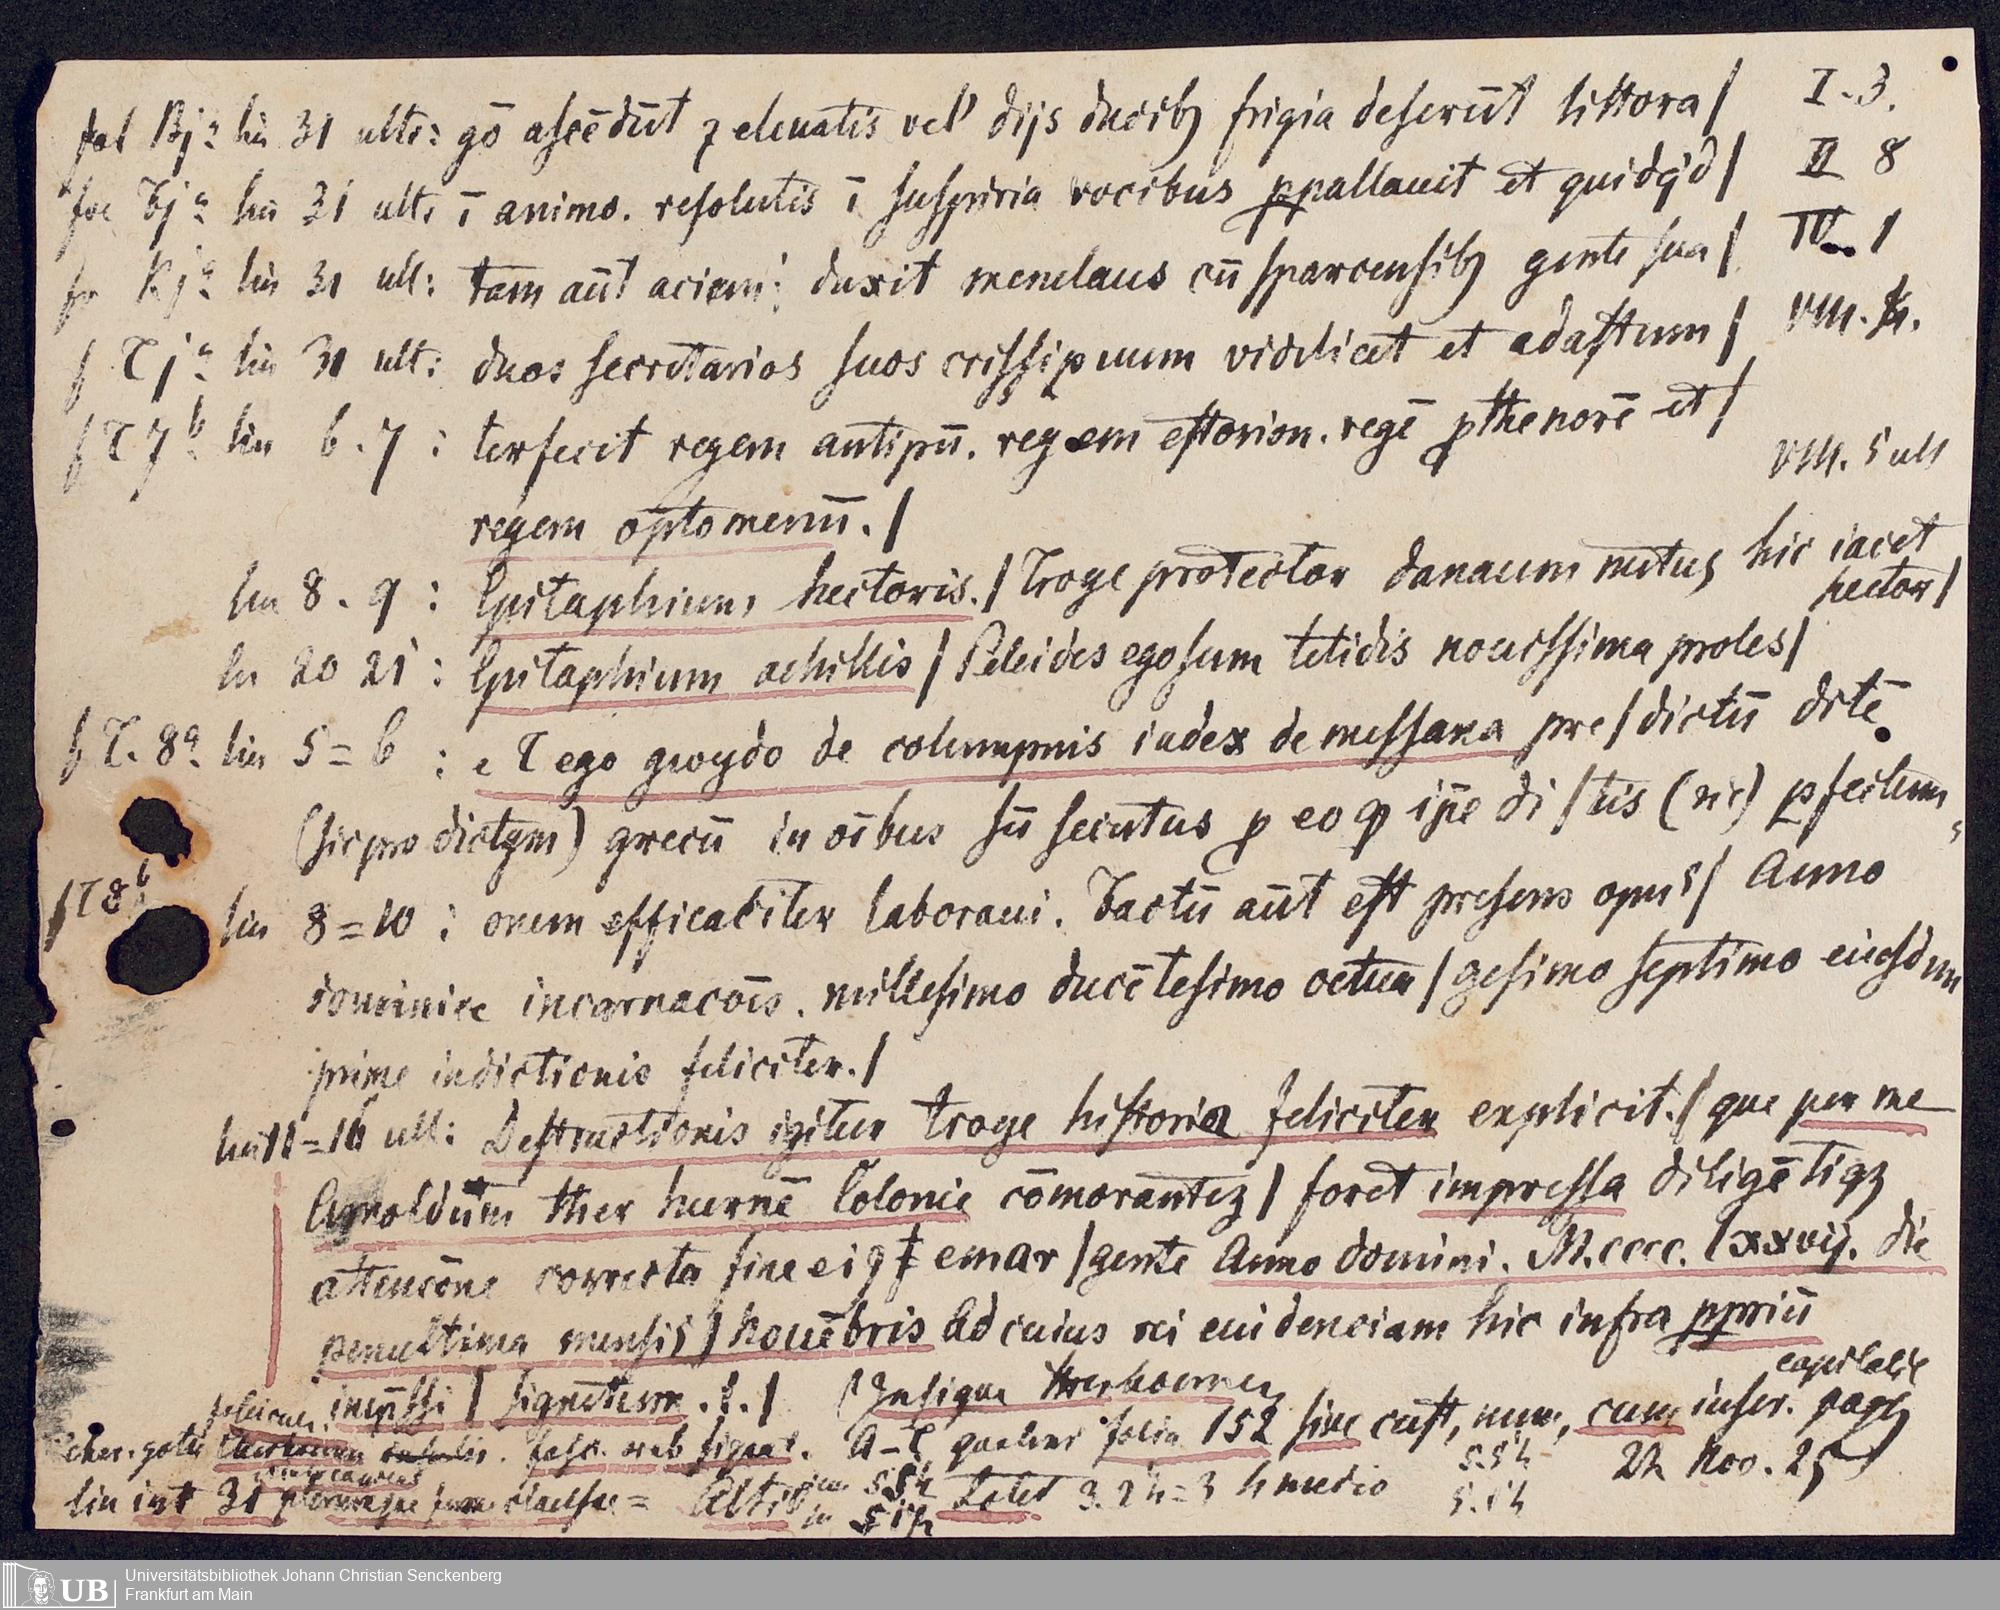 fol Bj a lin 31 ult: gō ascēdūt ⁊ eleuatis vel' dijs ducibꝫ frigia deserūt littora / I - 3.
lin 31 ult: ī animo. resolutis ī suspiria vocibus ꝑpallauit et quidq'd / II 8
Kj a lin 31 ult: tam aūt aciem: duxit menelaus cū sparcensibꝫ gente sua / IV. 1
f Tj a lin 31 ult: duos secretarios suos crissipuum videlicet et adastum / VIII.
f T 7 b lin 6.7: terfecit regem antipū. regem estorion. regē ꝓthenorē et /
regem optomenū. / VIII. 5 ult
lin 8.9: Epitaphium hectoris. / Troye protector danaum metus hic iacet
hector /
lin 20 21: Epitaphium achillis / Peleides ego sum tetidis nouissima proles /
f T. 8 a lin 5=6: eT ego gwydo de columpnis iudex de messana pre / dictū ditē
(sic pro dictym) grecū in oībus sū secutus ꝓ eo ꝙ ip̄e di / tis (sic) ꝑfectum
f T 8 b lin 8=10: opem efficaciter laboraui. Factū aūt est presens opus / Anno
dominice incarnacōis. millesimo ducētesimo octua / gesimo septimo eiusdem
prime indictionis feliciter. /
lin 11=16 ult: Destructionis igitur troye historia feliciter explicit. / que per me
Arnoldum ther hurnē Colonie cōmorantez / foret impressa diligē tiqꝫ
attencōne correcta fine emar / gente Anno domini. M.cccc. lxxvij. die
penultima mensis / nouēbris Ad cuius rei euidenciam hic infra ꝓpriū
impr̄ssi / signetum. :. / (Insigne therhoernen
capitalis
char. goth. fasc. sub signat. A-T quaterni folia 152 sine cust, num, cum inscr. pag
lin int 31 plerumque = Altit 3.2 h = 3 h medio 5.5 h 24 Nov. 25)